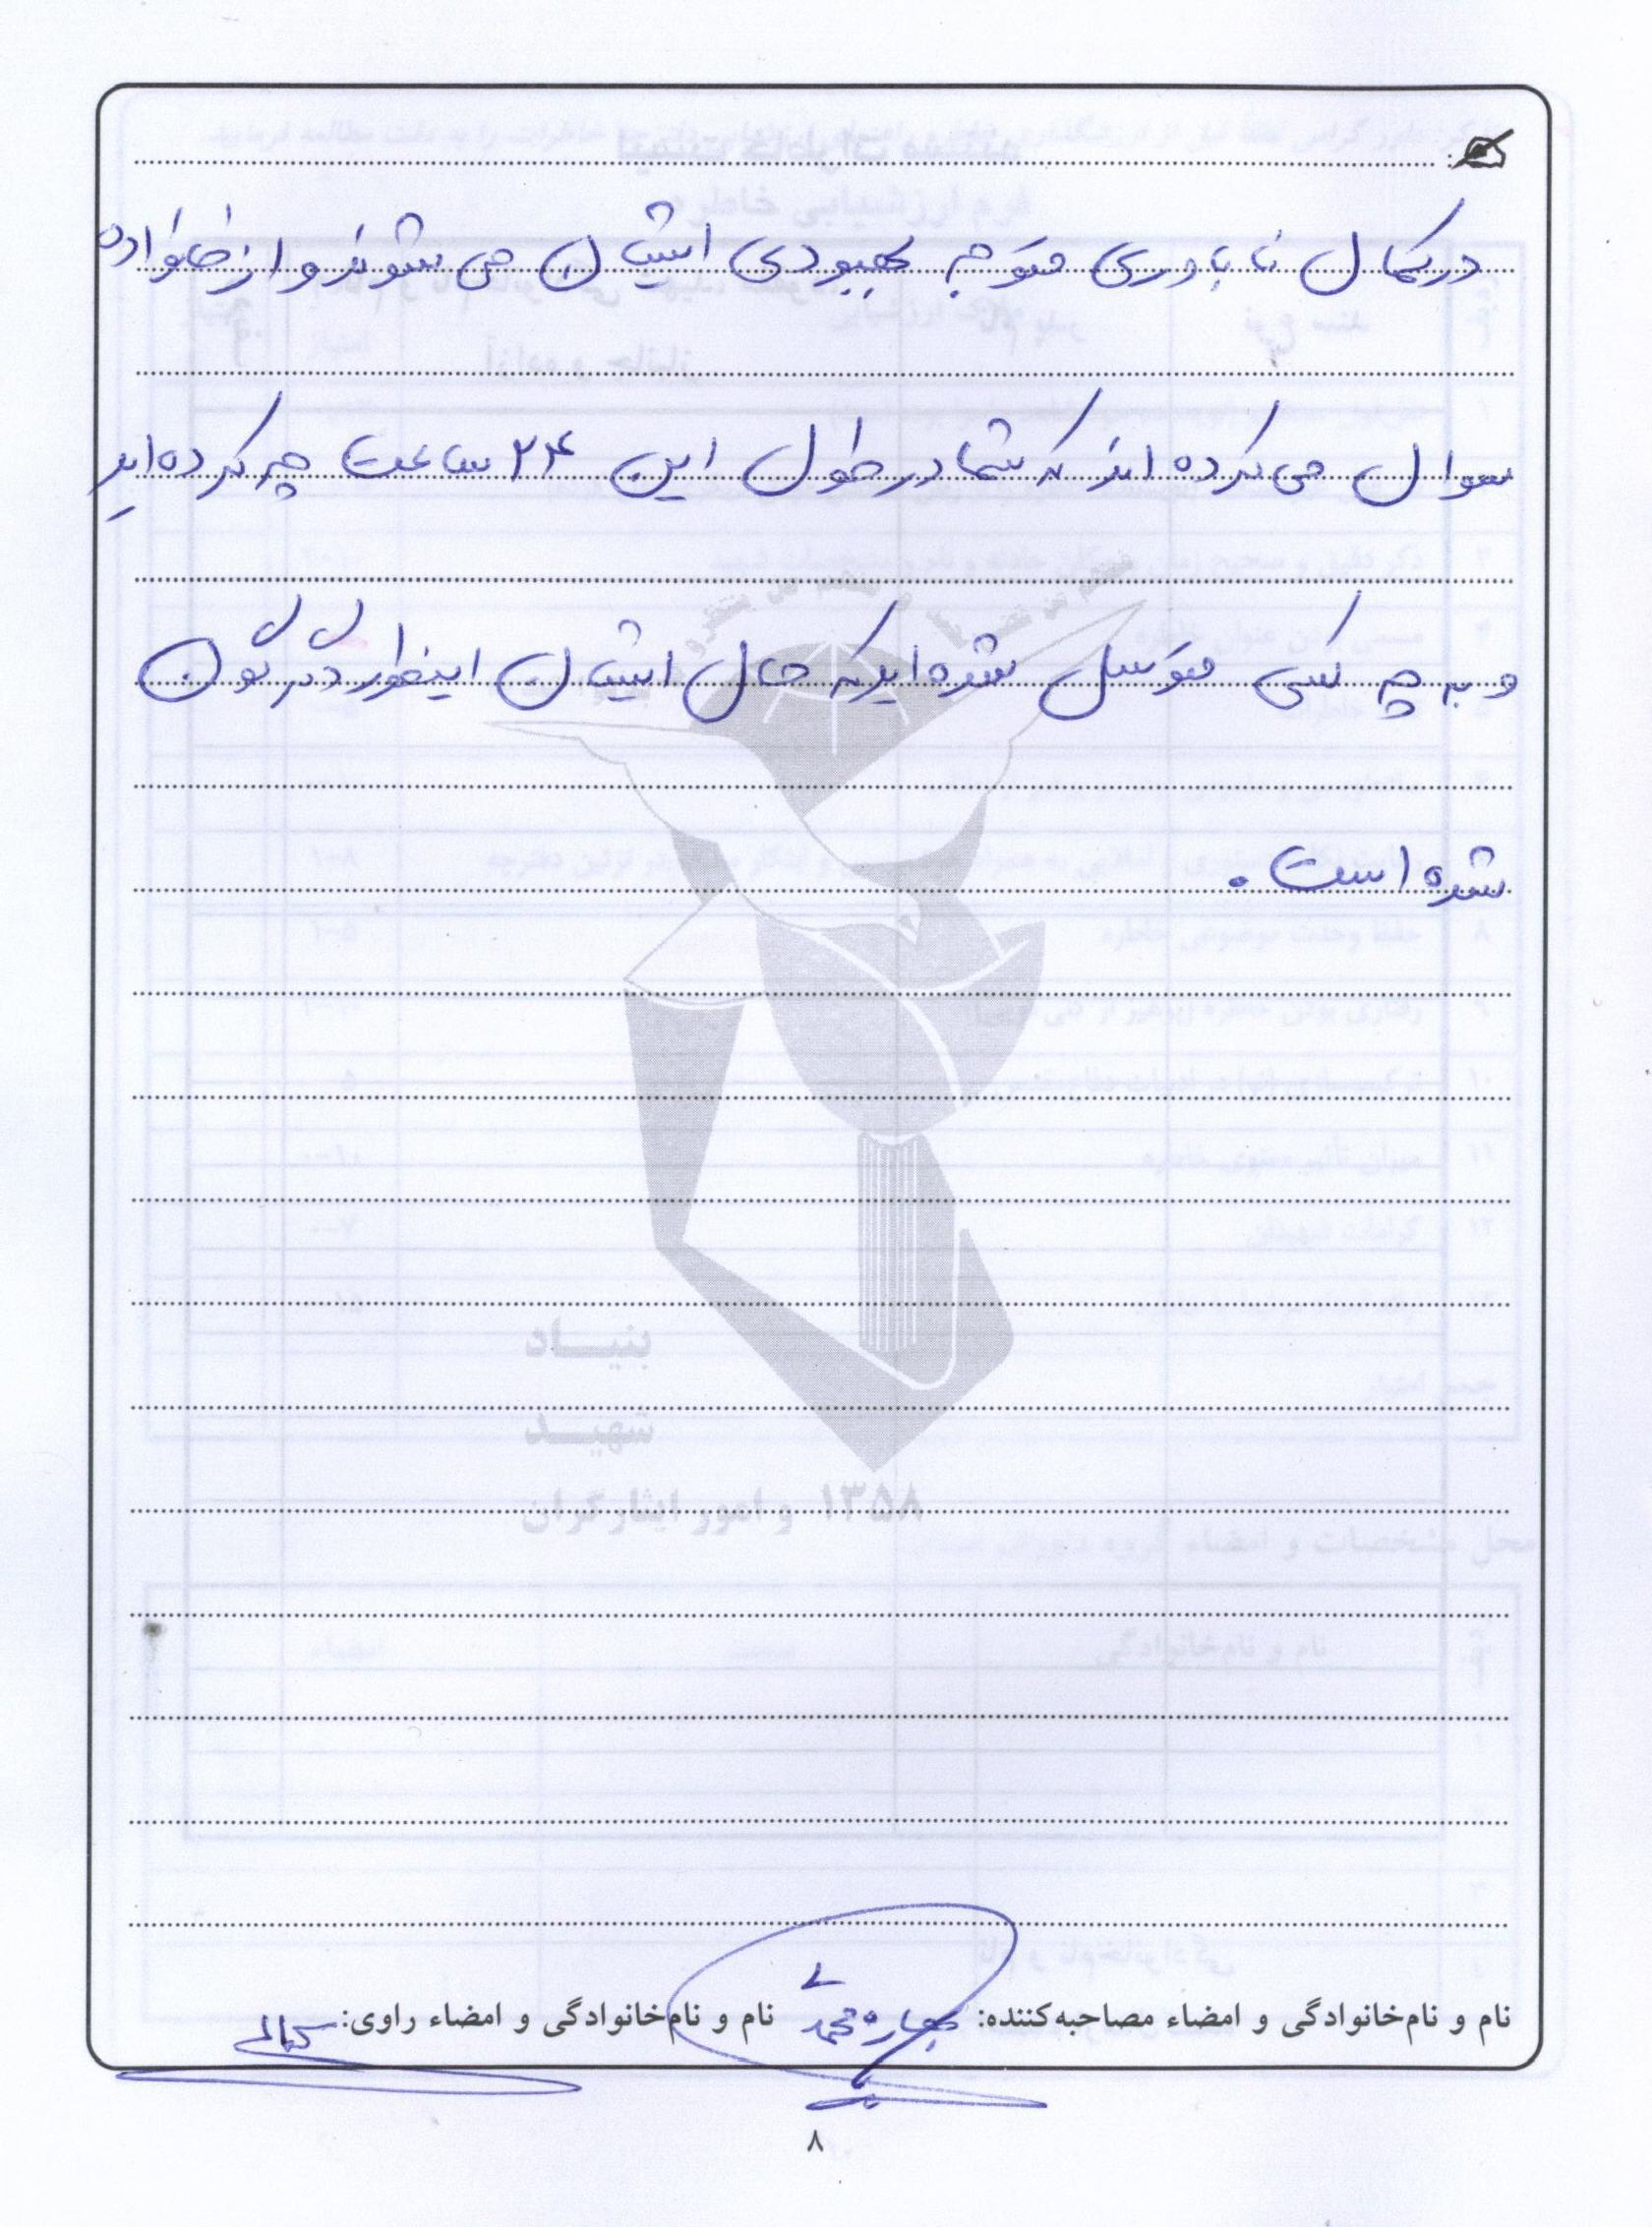 در کمال ناباوری متوجه بهبودی ایشان می شوند و از خانواده
سوال می کرده اند که شما در طول این ۲۴ ساعت چه کرده اید
و به چه کسی متوسل شده اید که حال ایشان اینطور دگرگون
شده است.
بنیاد
شهید
۱۳۵۸ و امور ایثارگران
نام و نام‌خانوادگی و امضاء مصاحبه‌کننده: نام و نام‌خانوادگی و امضاء راوی:
۸